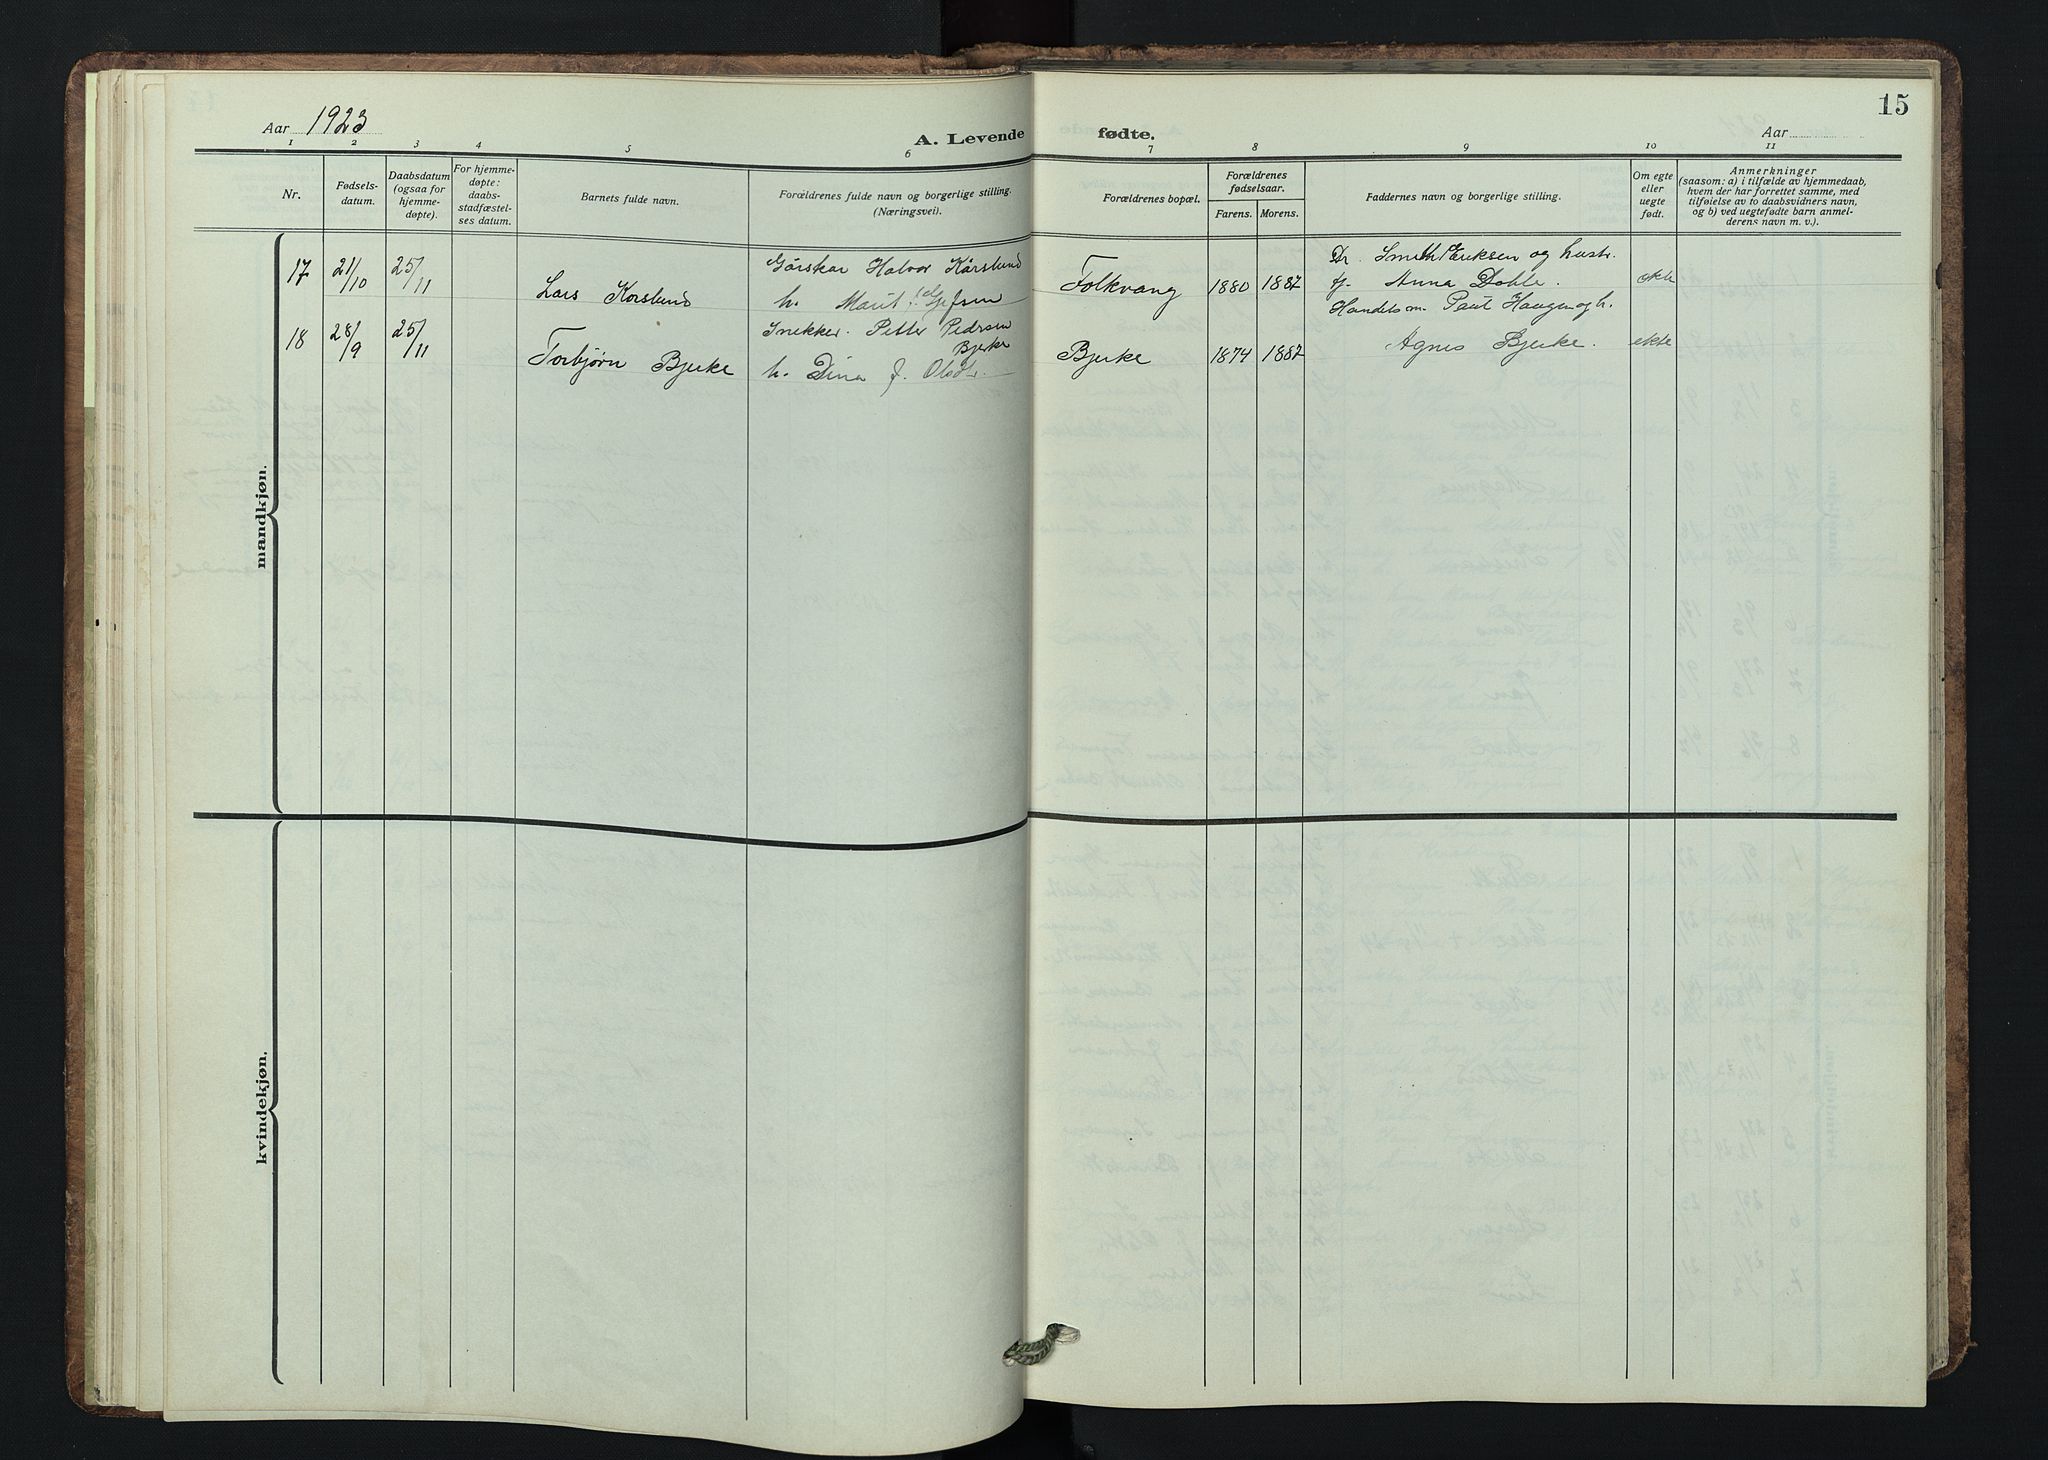 Aar 1923
A. Levende
fødte.
Aar
15
1 2 3 4 5 6 7 8 9 10 11
Nr.
Fødsels-
datum.
Daabsdatum
(ogsaa for
hjemme-
døpte).
For hjemme-
døpte:
daabs-
stadfæstel-
ses datum.
Barnets fulde navn.
Forældrenes fulde navn og borgerlige stilling.
(Næringsvei).
Forældrenes bopæl.
Forældrenes
fødselsaar.
Farens. Morens.
Faddernes navn og borgerlige stilling.
Om egte
eller
uegte
født.
Anmerkninger
(saasom: a) i tilfælde av hjemmedaab,
hvem der har forrettet samme, med
tilføielse av to daabsvidners navn,
og b) ved uegtefødte barn anmel-
derens navn m. v.).
mandkjøn.
17 21/10 25/11
Lars Korslund
Halvor Kårslund
h. Marit
Folkvang
1880 1887
Dr. Smith Eriksen og hustr.
Anna Dohle.
ekte
18 28/9 25/11
Torbjørn Bjerke
Snekker. Petter Pedrsen
Bjerke
h. Dina f. Olsdtr.
Bjerke
1874 1887
Handelsm. Paul Haugen og h.
Agnes Bjerke.
ekte
kvindekjøn.